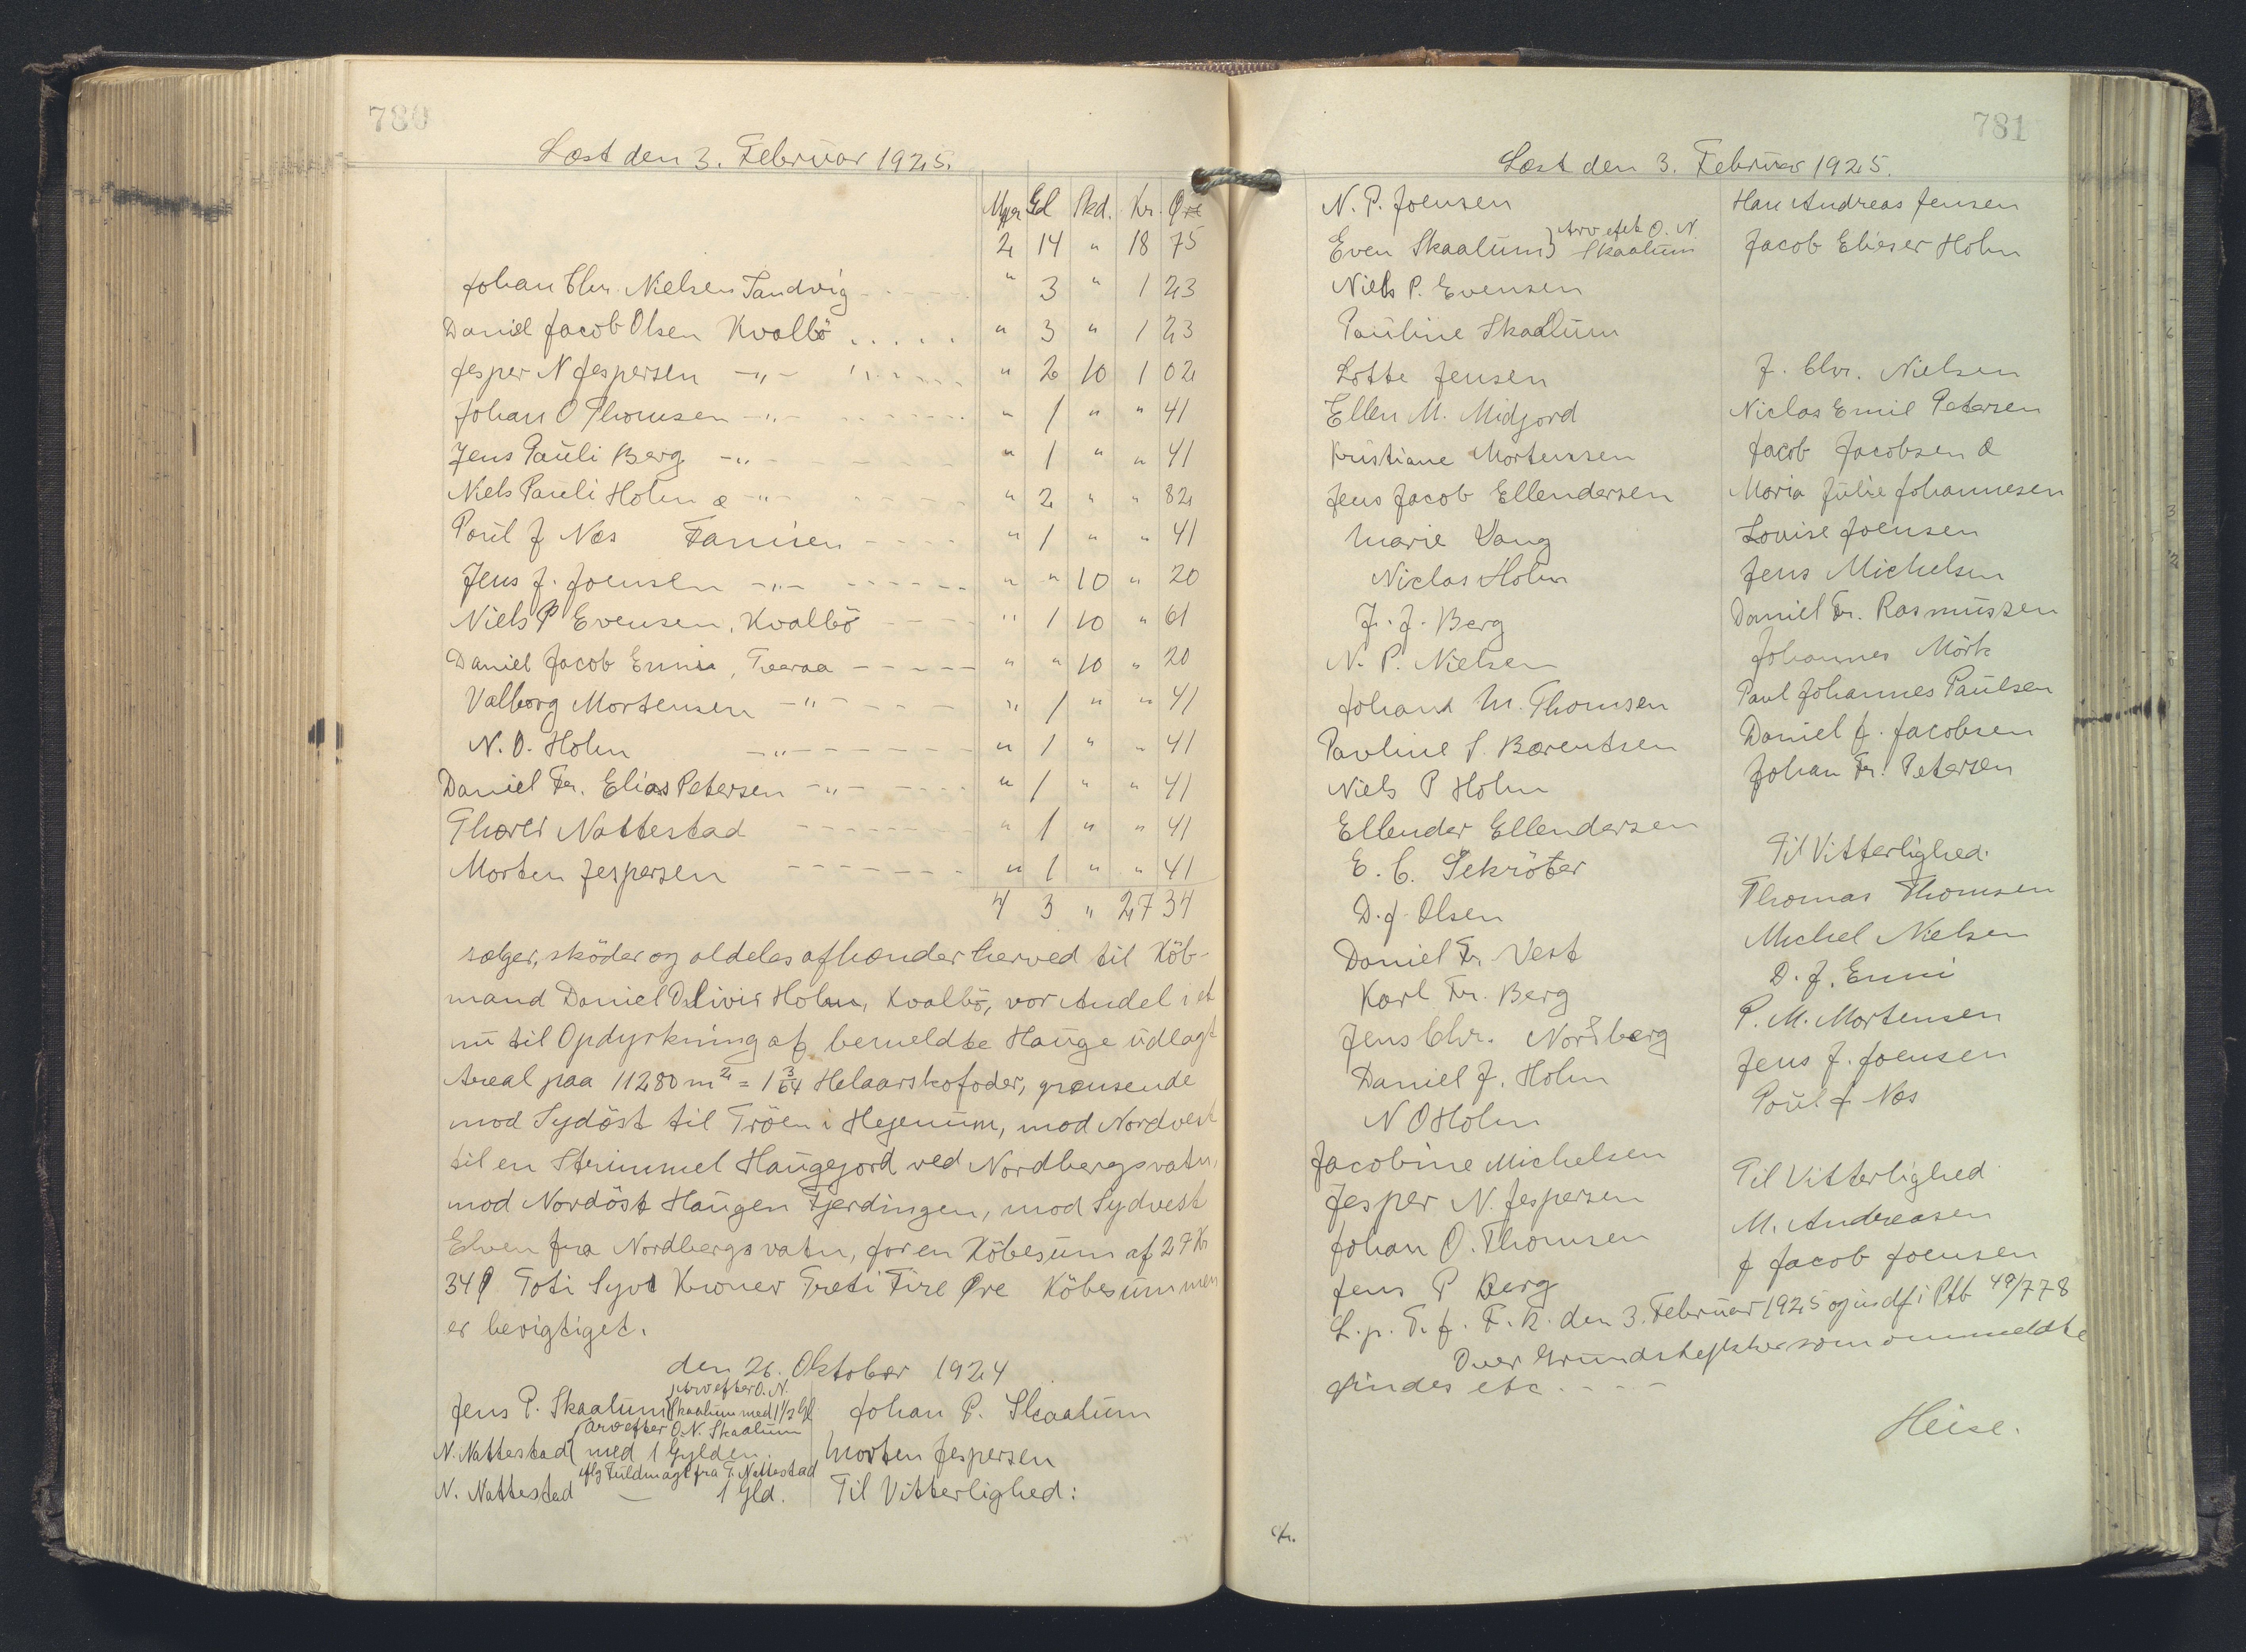 780
Læst den 3. Februar 1925.
Mjør Gl Skd. Kr. Øre
2 14 " 18 75
Johan Chr. Nielsen Sandvig - - - " 3 " 1 23
Daniel Jacob Olsen Kvalbö . . . . . " 3 " 1 23
Jesper N Jespersen -"- . . . . . " 2 10 1 02
Johan O Thomsen -"- - - - - " 1 " " 41
Jens Pauli Berg -"- - - - " 1 " " 41
Niels Pauli Holm -"- - - - - " 2 " " 82
Poul J Næs Famien - - - - " 1 " " 41
Jens J. Joensen -"- - - - - - " " 10 " 20
Niels P Evensen, Kvalbö - - - - " 1 10 " 61
Daniel Jacob Enni, Tværaa - - - - - " " 10 " 20
Valborg Mortensen -"- - - - - " 1 " " 41
N. O. Holm -"- - - - - - - " 1 " " 41
Daniel Fr. Elias Petersen -"- - - - - " 1 " " 41
Nattestad - - - - - - - " 1 " " 41
Morten Jespersen - - - - - - - " 1 " " 41
4 3 " 27 34
sælger, sköder og aldeles afhænder herved til Köb-
mand Daniel Holm, Kvalbö, vor Andel i et
nu til Opdyrkning af bemeldte Hauge udlagt
Areal paa 11280 m² = 1 3/64 Helaarskofoder, grænsende
mod Sydöst til Tröen i Hegenum, mod Nordvest
til en Strimmel Haugejord ved Nordbergsvatn,
mod Nordöst Haugen Fjerdingen, mod Sydvest
Elven fra Nordbergsvatn, for en Köbesum af 27 Kr
34 Ø Toti Syv Kroner Treti Fire Øre Köbesummen
er berigtiget.
den 26. Oktober 1924
Jens P. Skaalum } Arv efter O. N. Skaalum med 1 1/2 Gl Johan P. Skaalum
N. Nattestad } Arv efter O. N. Skaalum med 1 Gylden. Morten Jespersen
N. Nattestad iflg Fuldmagt fra T. Nattestad — 1 Gld. Til Vitterlighed:
781
Læst den 3. Februar 1925.
N. P. Joensen
Even Skaalum } Arv eft O. N. Skaalum
Niels P. Evensen
Pauline Skaalum
Lotte Jensen
Ellen M. Midjord
Kristiane Mortensen
Jens Jacob Ellendersen
Marie Vang
Niclas Holm
J. J. Berg
N. P. Nielsen
Johan M. Thomsen
Pauline S. Bærentsen
Niels P Holm
Ellender Ellendersen
E. C. Sekröter
D. J. Olsen
Daniel Fr. Vest
Karl Fr. Berg
Jens Chr. Nordberg
Daniel J. Holm
N O Holm
Jacobine Michelsen
Jesper N. Jespersen
Johan O. Thomsen
Jens P Berg
Han Andreas Jensen
Jacob Elieser Holm
J. Chr. Nielsen
Niclas Emil Petersen
Jacob Jacobsen
Maria Julie Johannesen
Lovise Joensen
Jens Michelsen
Daniel Fr. Rasmussen
Johannes Mörk
Paul Johannes Paulsen
Daniel J. Jacobsen
Johan Fr. Petersen
Til Vitterlighed:
Thomas Thomsen
Michel Nielsen
D. J. Enni
P. M. Mortensen
Jens J. Joensen
Poul J Næs
Til Vitterlighed
M. Andreasen
J Jacob Joensen
L. p. T. f. F. R. den 3. Februar 1925 og indf i Ptb 49/778
Over Grundstykker som ommeldte
findes etc. - - - -
Heise.